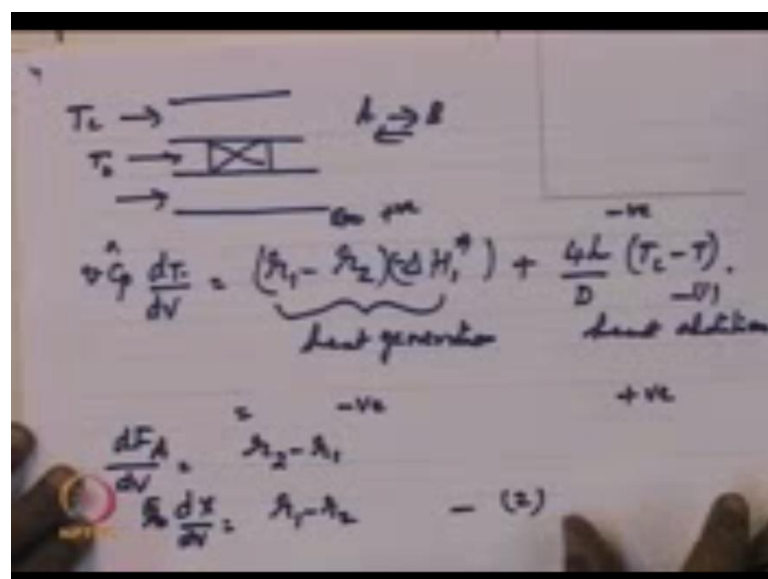 Tc → A ⇌ B
To →
→
Exo +ve -ve
v Ĉp dT/dV = (r1 - r2)(-ΔH1*) + 4h/D (Tc - T). -(1)
heat generation heat addition
= -ve +ve
dFA/dV = r2 - r1
F0 dx/dV = r1 - r2 - (2)
NPTEL